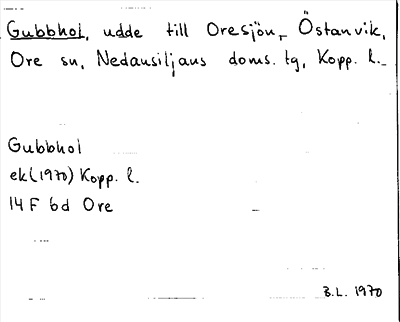 Gubbhol, udde till Oresjön, Östanvik,
Ore sn, Nedansiljans doms. tg, Kopp. l.
Gubbhol
ek(1970) Kopp. l.
14 F bd Ore
B.L. 1970